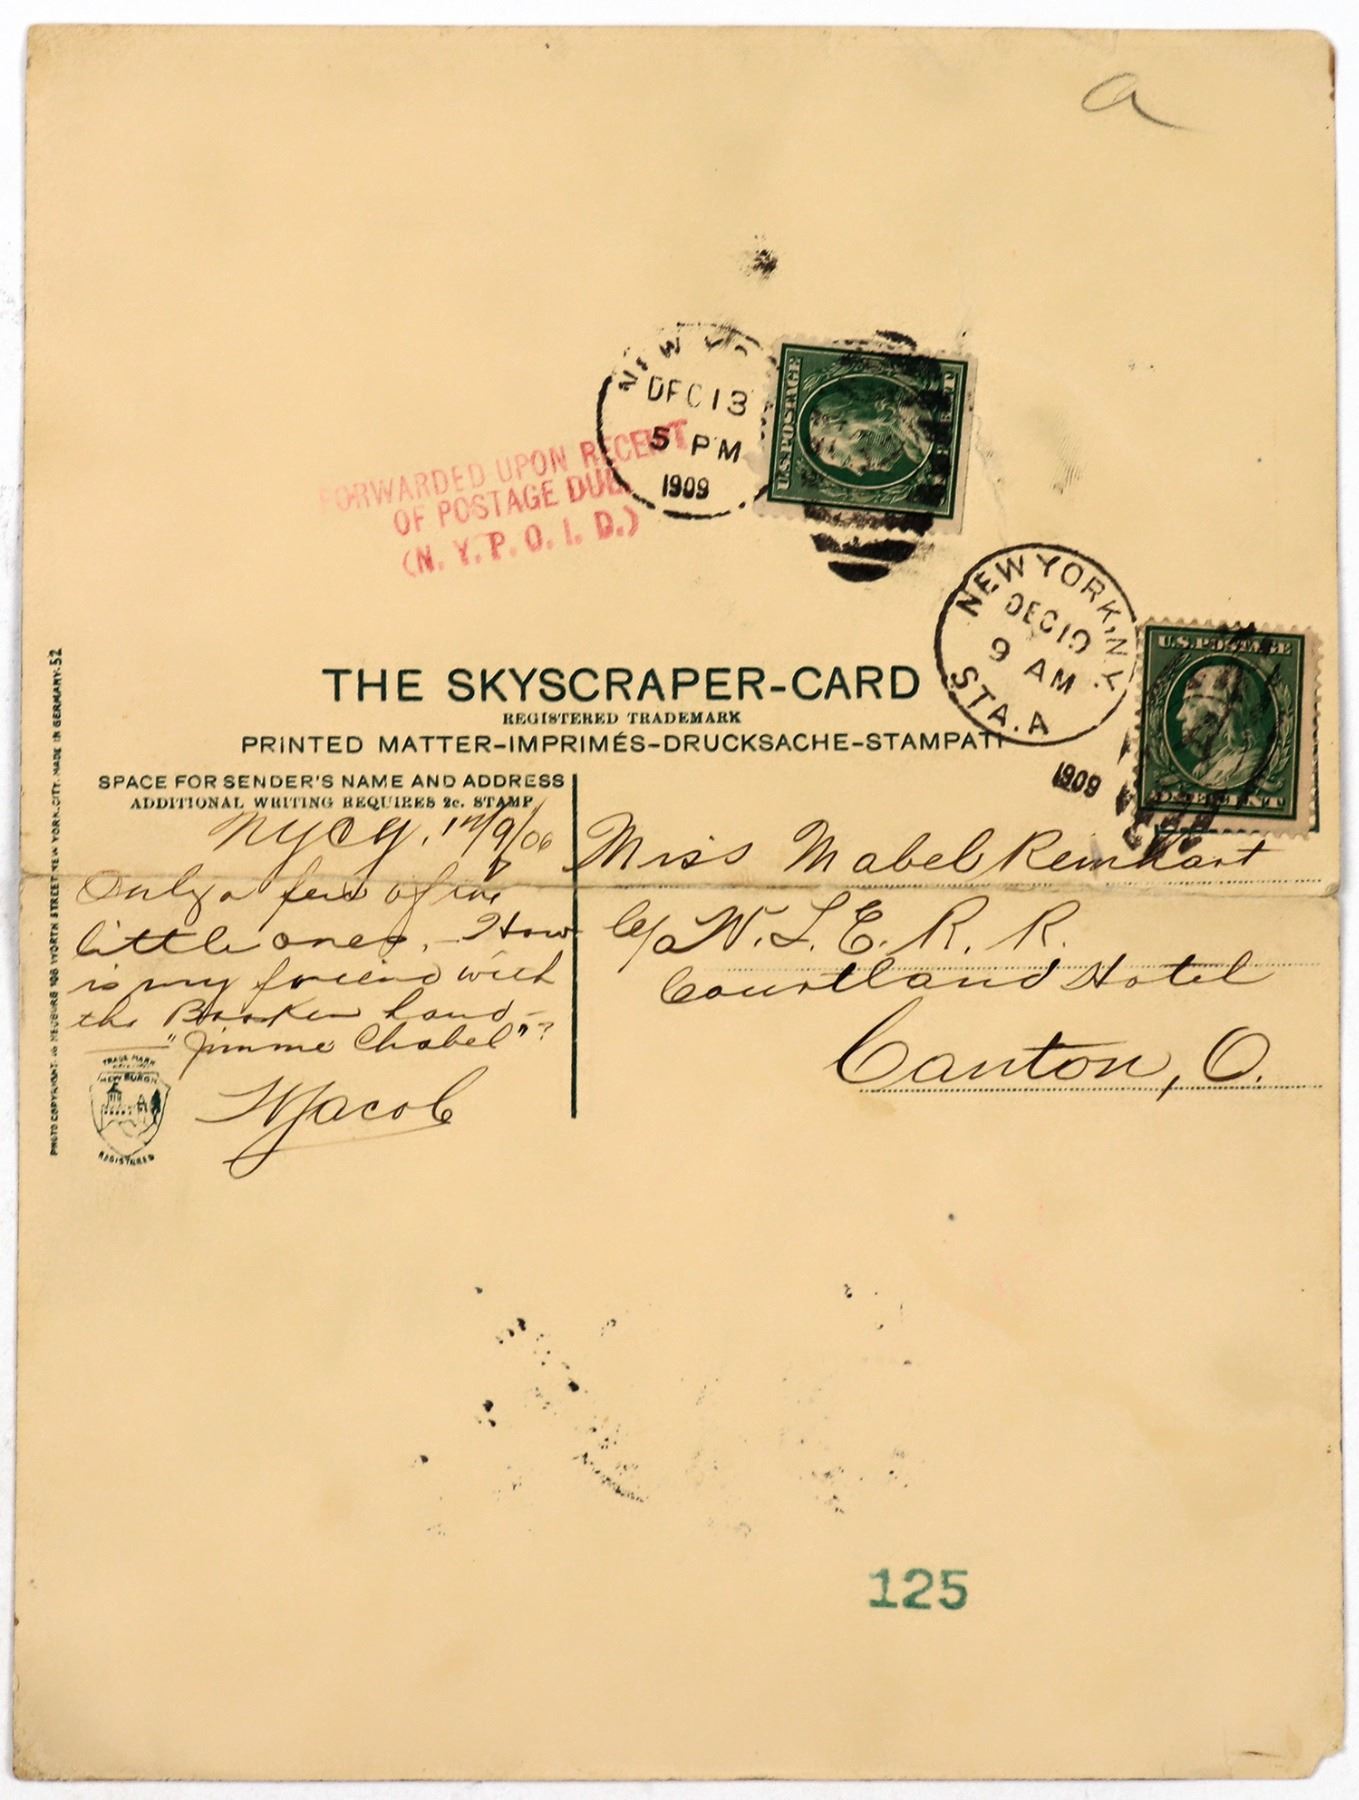 a
NEW YO
DEC 13
5 PM
1909
U.S. POSTAGE
FORWARDED UPON RECEIPT
OF POSTAGE DUE
(N. Y. P. O. I. D.)
NEW YORK, N.Y.
DEC 10
9 AM
STA. A
1909
U.S. POSTAGE
ONE CENT
THE SKYSCRAPER-CARD
REGISTERED TRADEMARK
PRINTED MATTER-IMPRIMÉS-DRUCKSACHE-STAMPATI
SPACE FOR SENDER'S NAME AND ADDRESS
ADDITIONAL WRITING REQUIRES 2c. STAMP
NYCy, 12/9/06
Only a few of
little ones. - How
is my friend with
the Broken hand -
"Jimme Chabel"?
Jacob
Miss Mabel Reinhart
c/o W. L. E. R. R.
Courtland Hotel
Canton, O.
TRADE MARK
NEWBURGH
REGISTERED
WORTH STREET NEW YORK CITY. MADE IN GERMANY. 52
125